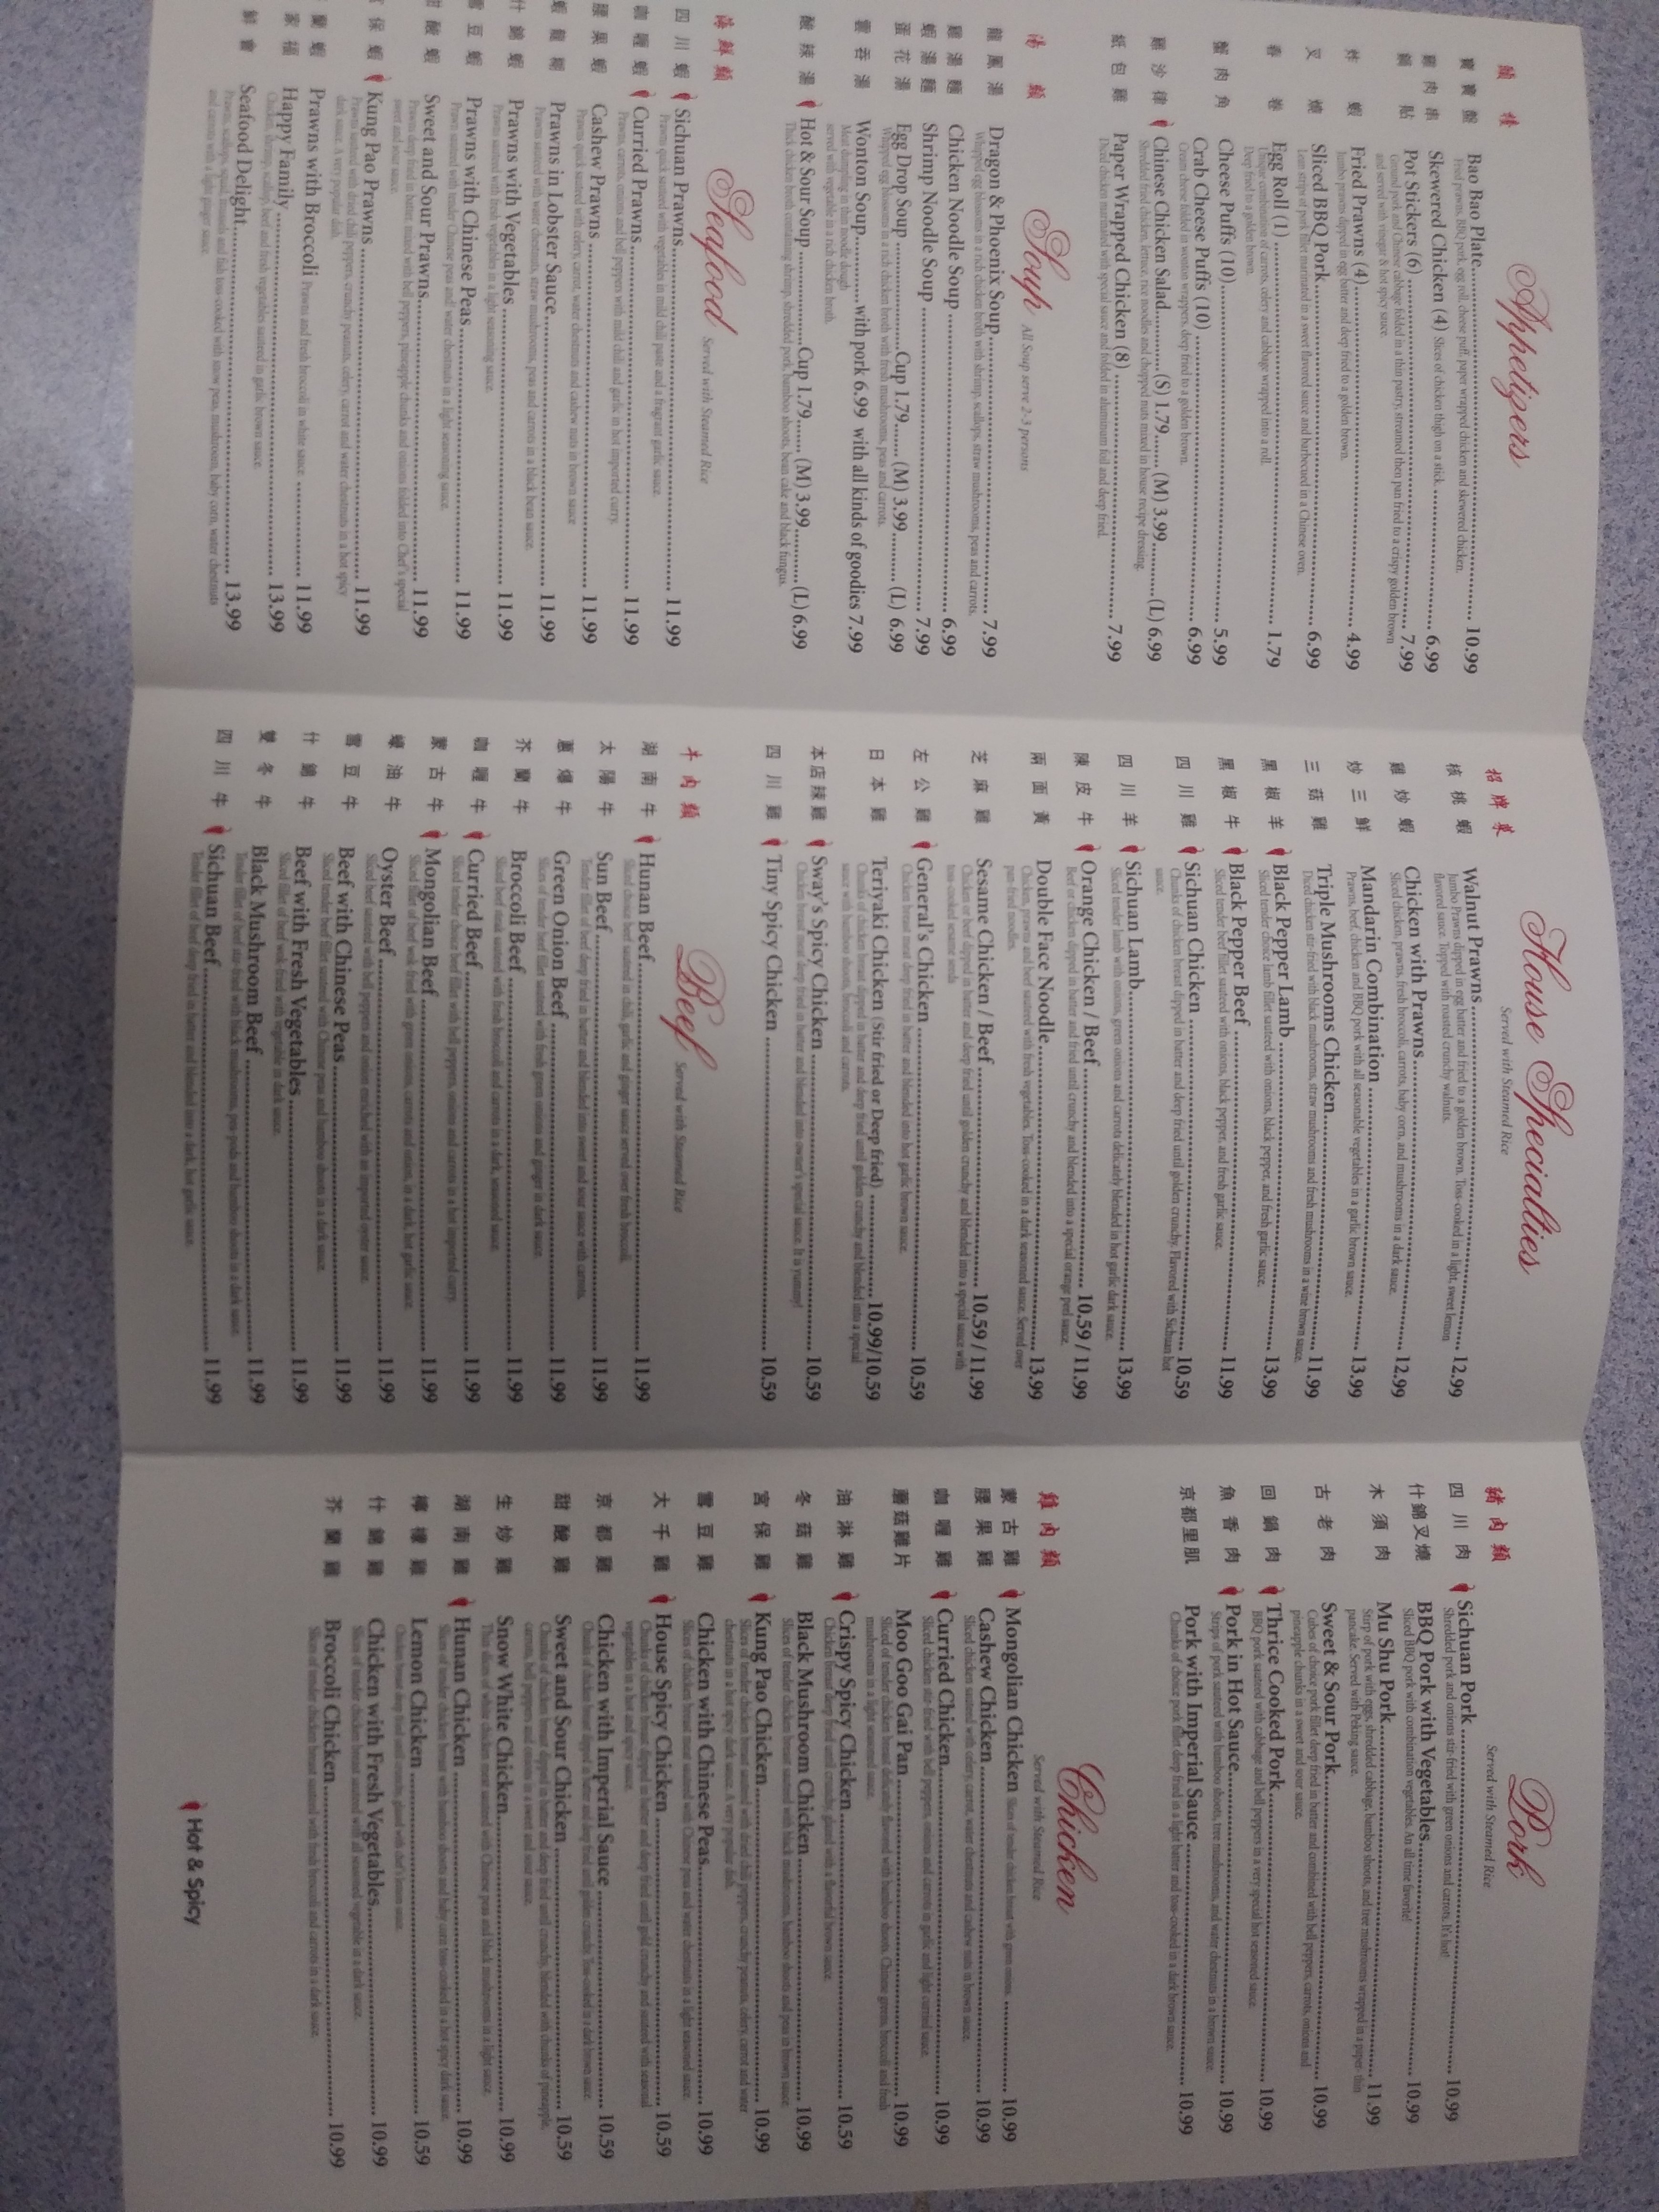 頭檯
Appetizers
寶寶盤 Bao Bao Plate 10.99
Fried prawns, BBQ pork, egg roll, cheese puff, paper wrapped chicken and skewered chicken.
雞肉串 Skewered Chicken (4) Slices of chicken thigh on a stick. 6.99
鍋貼 Pot Stickers (6) 7.99
Ground pork and Chinese cabbage folded in a thin pastry, streamed then pan fried to a crispy golden brown
and served with vinegar & hot spicy sauce.
炸蝦 Fried Prawns (4) 4.99
Jumbo prawns dipped in egg batter and deep fried to a golden brown.
叉燒 Sliced BBQ Pork 6.99
Lean strips of pork fillet marinated in a sweet flavored sauce and barbecued in a Chinese oven.
春卷 Egg Roll (1) 1.79
Unique combination of carrots, celery and cabbage wrapped into a roll.
Deep fried to a golden brown.
Cheese Puffs (10) 5.99
蟹肉角 Crab Cheese Puffs (10) 6.99
Cream cheese folded in wonton wrappers, deep fried to a golden brown.
雞沙律 Chinese Chicken Salad (S) 1.79 (M) 3.99 (L) 6.99
Shredded fried chicken, lettuce, rice noodles and chopped nuts mixed in house recipe dressing.
紙包雞 Paper Wrapped Chicken (8) 7.99
Diced chicken marinated with special sauce and folded in aluminum foil and deep fried.
湯類
Soup All Soup serve 2-3 persons
龍鳳湯 Dragon & Phoenix Soup 7.99
Whipped egg blossoms in a rich chicken broth with shrimp, scallops, straw mushrooms, peas and carrots.
雞湯麵 Chicken Noodle Soup 6.99
蝦湯麵 Shrimp Noodle Soup 7.99
蛋花湯 Egg Drop Soup Cup 1.79 (M) 3.99 (L) 6.99
Whipped egg blossoms in a rich chicken broth with fresh mushrooms, peas and carrots.
雲吞湯 Wonton Soup with pork 6.99 with all kinds of goodies 7.99
Meat dumpling in thin noodle dough
served with vegetable in a rich chicken broth.
酸辣湯 Hot & Sour Soup Cup 1.79 (M) 3.99 (L) 6.99
Thick chicken broth containing shrimp, shredded pork, bamboo shoots, bean cake and black fungus.
海鮮類
Seafood Served with Steamed Rice
四川蝦 Sichuan Prawns 11.99
Prawns quick sauteed with vegetables in mild chili paste and a fragrant garlic sauce.
咖喱蝦 Curried Prawns 11.99
Prawns, carrots, onions and bell peppers with mild chili and garlic in hot imported curry.
腰果蝦 Cashew Prawns 11.99
Prawns quick sauteed with celery, carrot, water chestnuts and cashew nuts in brown sauce
蝦龍糊 Prawns in Lobster Sauce 11.99
Prawns sauteed with water chestnuts, straw mushrooms, peas and carrots in a black bean sauce.
什錦蝦 Prawns with Vegetables 11.99
Prawns sauteed with fresh vegetables in a light seasoning sauce.
雪豆蝦 Prawns with Chinese Peas 11.99
Prawn sauteed with tender Chinese peas and water chestnuts in a light seasoning sauce.
甜酸蝦 Sweet and Sour Prawns 11.99
Prawns deep fried in batter, mixed with bell peppers, pineapple chunks and onions folded into Chef's special
sweet and sour sauce.
宮保蝦 Kung Pao Prawns 11.99
Prawns sauteed with dried chili peppers, crunchy peanuts, celery, carrot and water chestnuts in a hot spicy
dark sauce. A very popular dish.
蘭蝦 Prawns with Broccoli Prawns and fresh broccoli in white sauce 11.99
家福 Happy Family 13.99
Chicken, shrimp, scallop, beef and fresh vegetables sauteed in garlic brown sauce.
鮮會 Seafood Delight 13.99
Prawns, scallops, squid, mussels and fish toss-cooked with snow peas, mushroom, baby corn, water chestnuts
and carrots with a light ginger sauce.
招牌菜
House Specialties
Served with Steamed Rice
核桃蝦 Walnut Prawns 12.99
Jumbo Prawns dipped in egg batter and fried to a golden brown. Toss-cooked in a light, sweet lemon
flavored sauce. Topped with roasted crunchy walnuts.
雞炒蝦 Chicken with Prawns 12.99
Sliced chicken, prawns, fresh broccoli, carrots, baby corn, and mushrooms in a dark sauce.
炒三鮮 Mandarin Combination 13.99
Prawns, beef, chicken and BBQ pork with all seasonable vegetables in a garlic brown sauce.
三菇雞 Triple Mushrooms Chicken 11.99
Diced chicken stir-fried with black mushrooms, straw mushrooms and fresh mushrooms in a wine brown sauce.
黑椒羊 Black Pepper Lamb 13.99
Sliced tender choice lamb fillet sauteed with onions, black pepper, and fresh garlic sauce.
黑椒牛 Black Pepper Beef 11.99
Sliced tender beef fillet sauteed with onions, black pepper, and fresh garlic sauce.
四川雞 Sichuan Chicken 10.59
Chunks of chicken breast dipped in batter and deep fried until golden crunchy. Flavored with Sichuan hot
sauce.
四川羊 Sichuan Lamb 13.99
Sliced tender lamb with onions, green onions and carrots delicately blended in hot garlic dark sauce.
陳皮牛 Orange Chicken / Beef 10.59 / 11.99
Beef or chicken dipped in batter and fried until crunchy and blended into a special orange peel sauce.
兩面黃 Double Face Noodle 13.99
Chicken, prawns and beef sauteed with fresh vegetables. Toss-cooked in a dark seasoned sauce. Served over
pan-fried noodles.
芝麻雞 Sesame Chicken / Beef 10.59 / 11.99
Chicken or beef dipped in batter and deep fried until golden crunchy and blended into a special sauce with
toss-cooked sesame seeds
左公雞 General's Chicken 10.59
Chicken breast meat deep fried in batter and blended into hot garlic brown sauce.
日本雞 Teriyaki Chicken (Stir fried or Deep fried) 10.99/10.59
Chunks of chicken breast dipped in batter and deep fried until golden crunchy and blended into a special
sauce with bamboo shoots, broccoli and carrots.
本店辣雞 Sway's Spicy Chicken 10.59
Chicken breast meat deep fried in batter and blended into owner's special sauce. It is yummy!
四川雞 Tiny Spicy Chicken 10.59
牛肉類
Beef Served with Steamed Rice
湖南牛 Hunan Beef 11.99
Sliced choice beef sauteed in chili, garlic, and ginger sauce served over fresh broccoli.
太陽牛 Sun Beef 11.99
Tender fillet of beef deep fried in batter and blended into sweet and sour sauce with carrots.
蔥爆牛 Green Onion Beef 11.99
Slices of tender beef fillet sauteed with fresh green onions and ginger in dark sauce.
芥蘭牛 Broccoli Beef 11.99
Sliced beef steak sauteed with fresh broccoli and carrots in dark, seasoned sauce.
咖喱牛 Curried Beef 11.99
Sliced tender choice beef fillet with bell peppers, onions and carrots in a hot imported curry.
蒙古牛 Mongolian Beef 11.99
Sliced fillet of beef wok fried with green onions, carrots and onion, in a dark, hot garlic sauce.
蠔油牛 Oyster Beef 11.99
Sliced beef sauteed with bell peppers and onion enriched with an imported oyster sauce.
雪豆牛 Beef with Chinese Peas 11.99
Sliced tender beef fillet sauteed with Chinese peas and bamboo shoots in a dark sauce.
什錦牛 Beef with Fresh Vegetables 11.99
Sliced fillet of beef wok-fried with vegetable in dark sauce.
雙冬牛 Black Mushroom Beef 11.99
Tender fillet of beef stir-fried with black mushrooms, pea-pods and bamboo shoots in a dark sauce.
四川牛 Sichuan Beef 11.99
Tender fillet of beef deep fried in batter and blended into a dark, hot garlic sauce.
豬肉類
Pork
Served with Steamed Rice
四川肉 Sichuan Pork 10.99
Shredded pork and onions stir-fried with green onions and carrots. It's hot!
什錦叉燒 BBQ Pork with Vegetables 10.99
Sliced BBQ pork with combination vegetables. An all time favorite!
木須肉 Mu Shu Pork 11.99
Strip of pork with eggs, shredded cabbage, bamboo shoots, and tree mushrooms wrapped in a paper- thin
pancake. Served with Peking sauce.
古老肉 Sweet & Sour Pork 10.99
Cubes of choice pork fillet deep fried in batter and combined with bell peppers, carrots, onions and
pineapple chunks in a sweet and sour sauce.
回鍋肉 Thrice Cooked Pork 10.99
BBQ pork sauteed with cabbage and bell peppers in a very special hot seasoned sauce.
魚香肉 Pork in Hot Sauce 10.99
Strips of pork sauteed with bamboo shoots, tree mushrooms, and water chestnuts in a brown sauce.
京都里肌 Pork with Imperial Sauce 10.99
Chunks of choice pork fillet deep fried in a light batter and toss-cooked in a dark brown sauce.
雞肉類
Chicken
Served with Steamed Rice
蒙古雞 Mongolian Chicken Slices of tender chicken breast with green onions. 10.99
腰果雞 Cashew Chicken 10.99
Sliced chicken sauteed with celery, carrot, water chestnuts and cashew nuts in brown sauce.
咖喱雞 Curried Chicken 10.99
Sliced chicken stir-fried with bell peppers, onions and carrots in garlic and light curried sauce.
蘑菇雞片 Moo Goo Gai Pan 10.99
Sliced of tender chicken breast delicately flavored with bamboo shoots, Chinese greens, broccoli and fresh
mushrooms in a light seasoned sauce.
油淋雞 Crispy Spicy Chicken 10.59
Chicken breast deep fried until crunchy, glazed with a flavorful brown sauce.
冬菇雞 Black Mushroom Chicken 10.99
Slices of tender chicken breast sauteed with black mushrooms, bamboo shoots and peas in brown sauce.
宮保雞 Kung Pao Chicken 10.99
Slices of tender chicken breast sauteed with dried chili peppers, crunchy peanuts, celery, carrot and water
chestnuts in a hot spicy dark sauce. A very popular dish.
雪豆雞 Chicken with Chinese Peas 10.99
Slices of chicken breast meat sauteed with Chinese peas and water chestnuts in a light seasoned sauce.
大千雞 House Spicy Chicken 10.59
Chunks of chicken breast dipped in batter and deep fried until gold crunchy and sauteed with seasonal
vegetables in a hot and spicy sauce.
京都雞 Chicken with Imperial Sauce 10.59
Chunks of chicken breast dipped in batter and deep fried until golden crunchy. Toss-cooked in a dark brown sauce.
甜酸雞 Sweet and Sour Chicken 10.59
Chunks of chicken breast dipped in batter and deep fried until crunchy, blended with chunks of pineapple,
carrots, bell peppers and onion in a sweet and sour sauce.
生炒雞 Snow White Chicken 10.99
Thin slices of white chicken meat sauteed with Chinese peas and black mushrooms in a light sauce.
湖南雞 Hunan Chicken 10.99
Slices of tender chicken breast with bamboo shoots and baby corn toss-cooked in a hot spicy dark sauce.
檸檬雞 Lemon Chicken 10.59
Chicken breast deep fried until crunchy, glazed with chef's lemon sauce.
什錦雞 Chicken with Fresh Vegetables 10.99
Slices of tender chicken breast sauteed with all seasoned vegetable in dark sauce.
芥蘭雞 Broccoli Chicken 10.99
Slices of tender chicken breast sauteed with fresh broccoli and carrots in a dark sauce.
Hot & Spicy